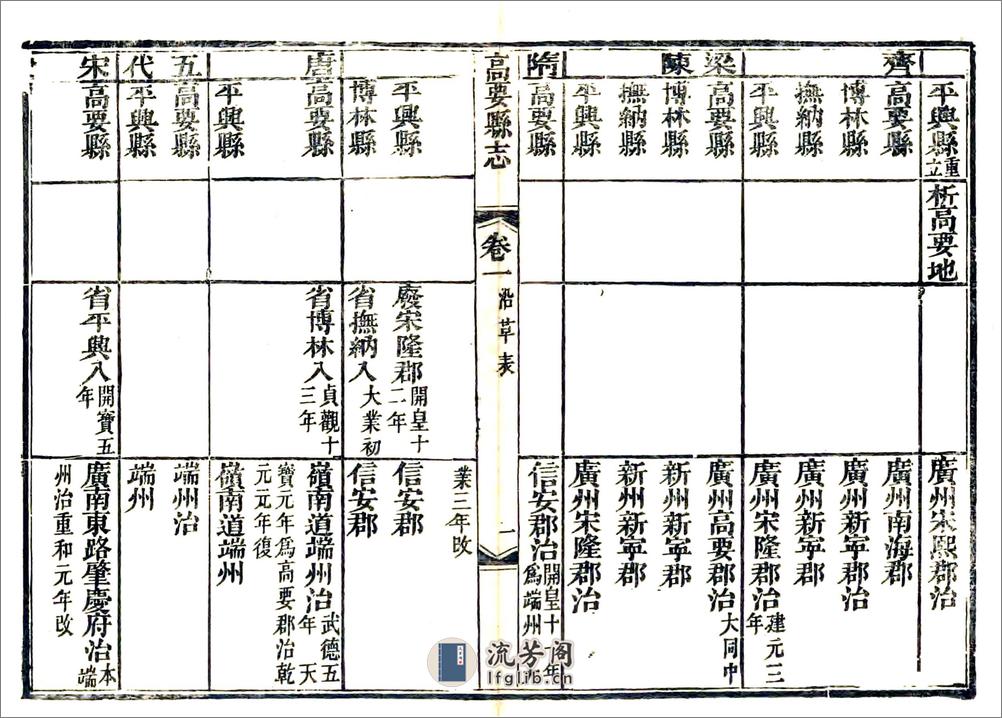 平興縣重立
析高要地
廣州宋熙郡治
齊
高要縣
廣州南海郡
博林縣
廣州新寧郡治
撫納縣
廣州新寧郡
平興縣
廣州宋隆郡治建元三年
梁
陳
高要縣
廣州高要郡治大同中
博林縣
新州新寧郡
撫納縣
新州新寧郡
平興縣
廣州宋隆郡治
隋
高要縣
信安郡治開皇十一年爲端州
高要縣志
卷一
沿革表
一
業三年改
平興縣
廢宋隆郡開皇十二年
信安郡
博林縣
省撫納入大業初
信安郡
唐
高要縣
省博林入貞觀十三年
嶺南道端州治武德五年天
寶元年爲高要郡治乾
元元年復
平興縣
嶺南道端州
五代
高要縣
端州治
平興縣
端州
宋
高要縣
省平興入開寶五年
廣南東路肇慶府治本端
州治重和元年改
流芳阁
lfglib.cn